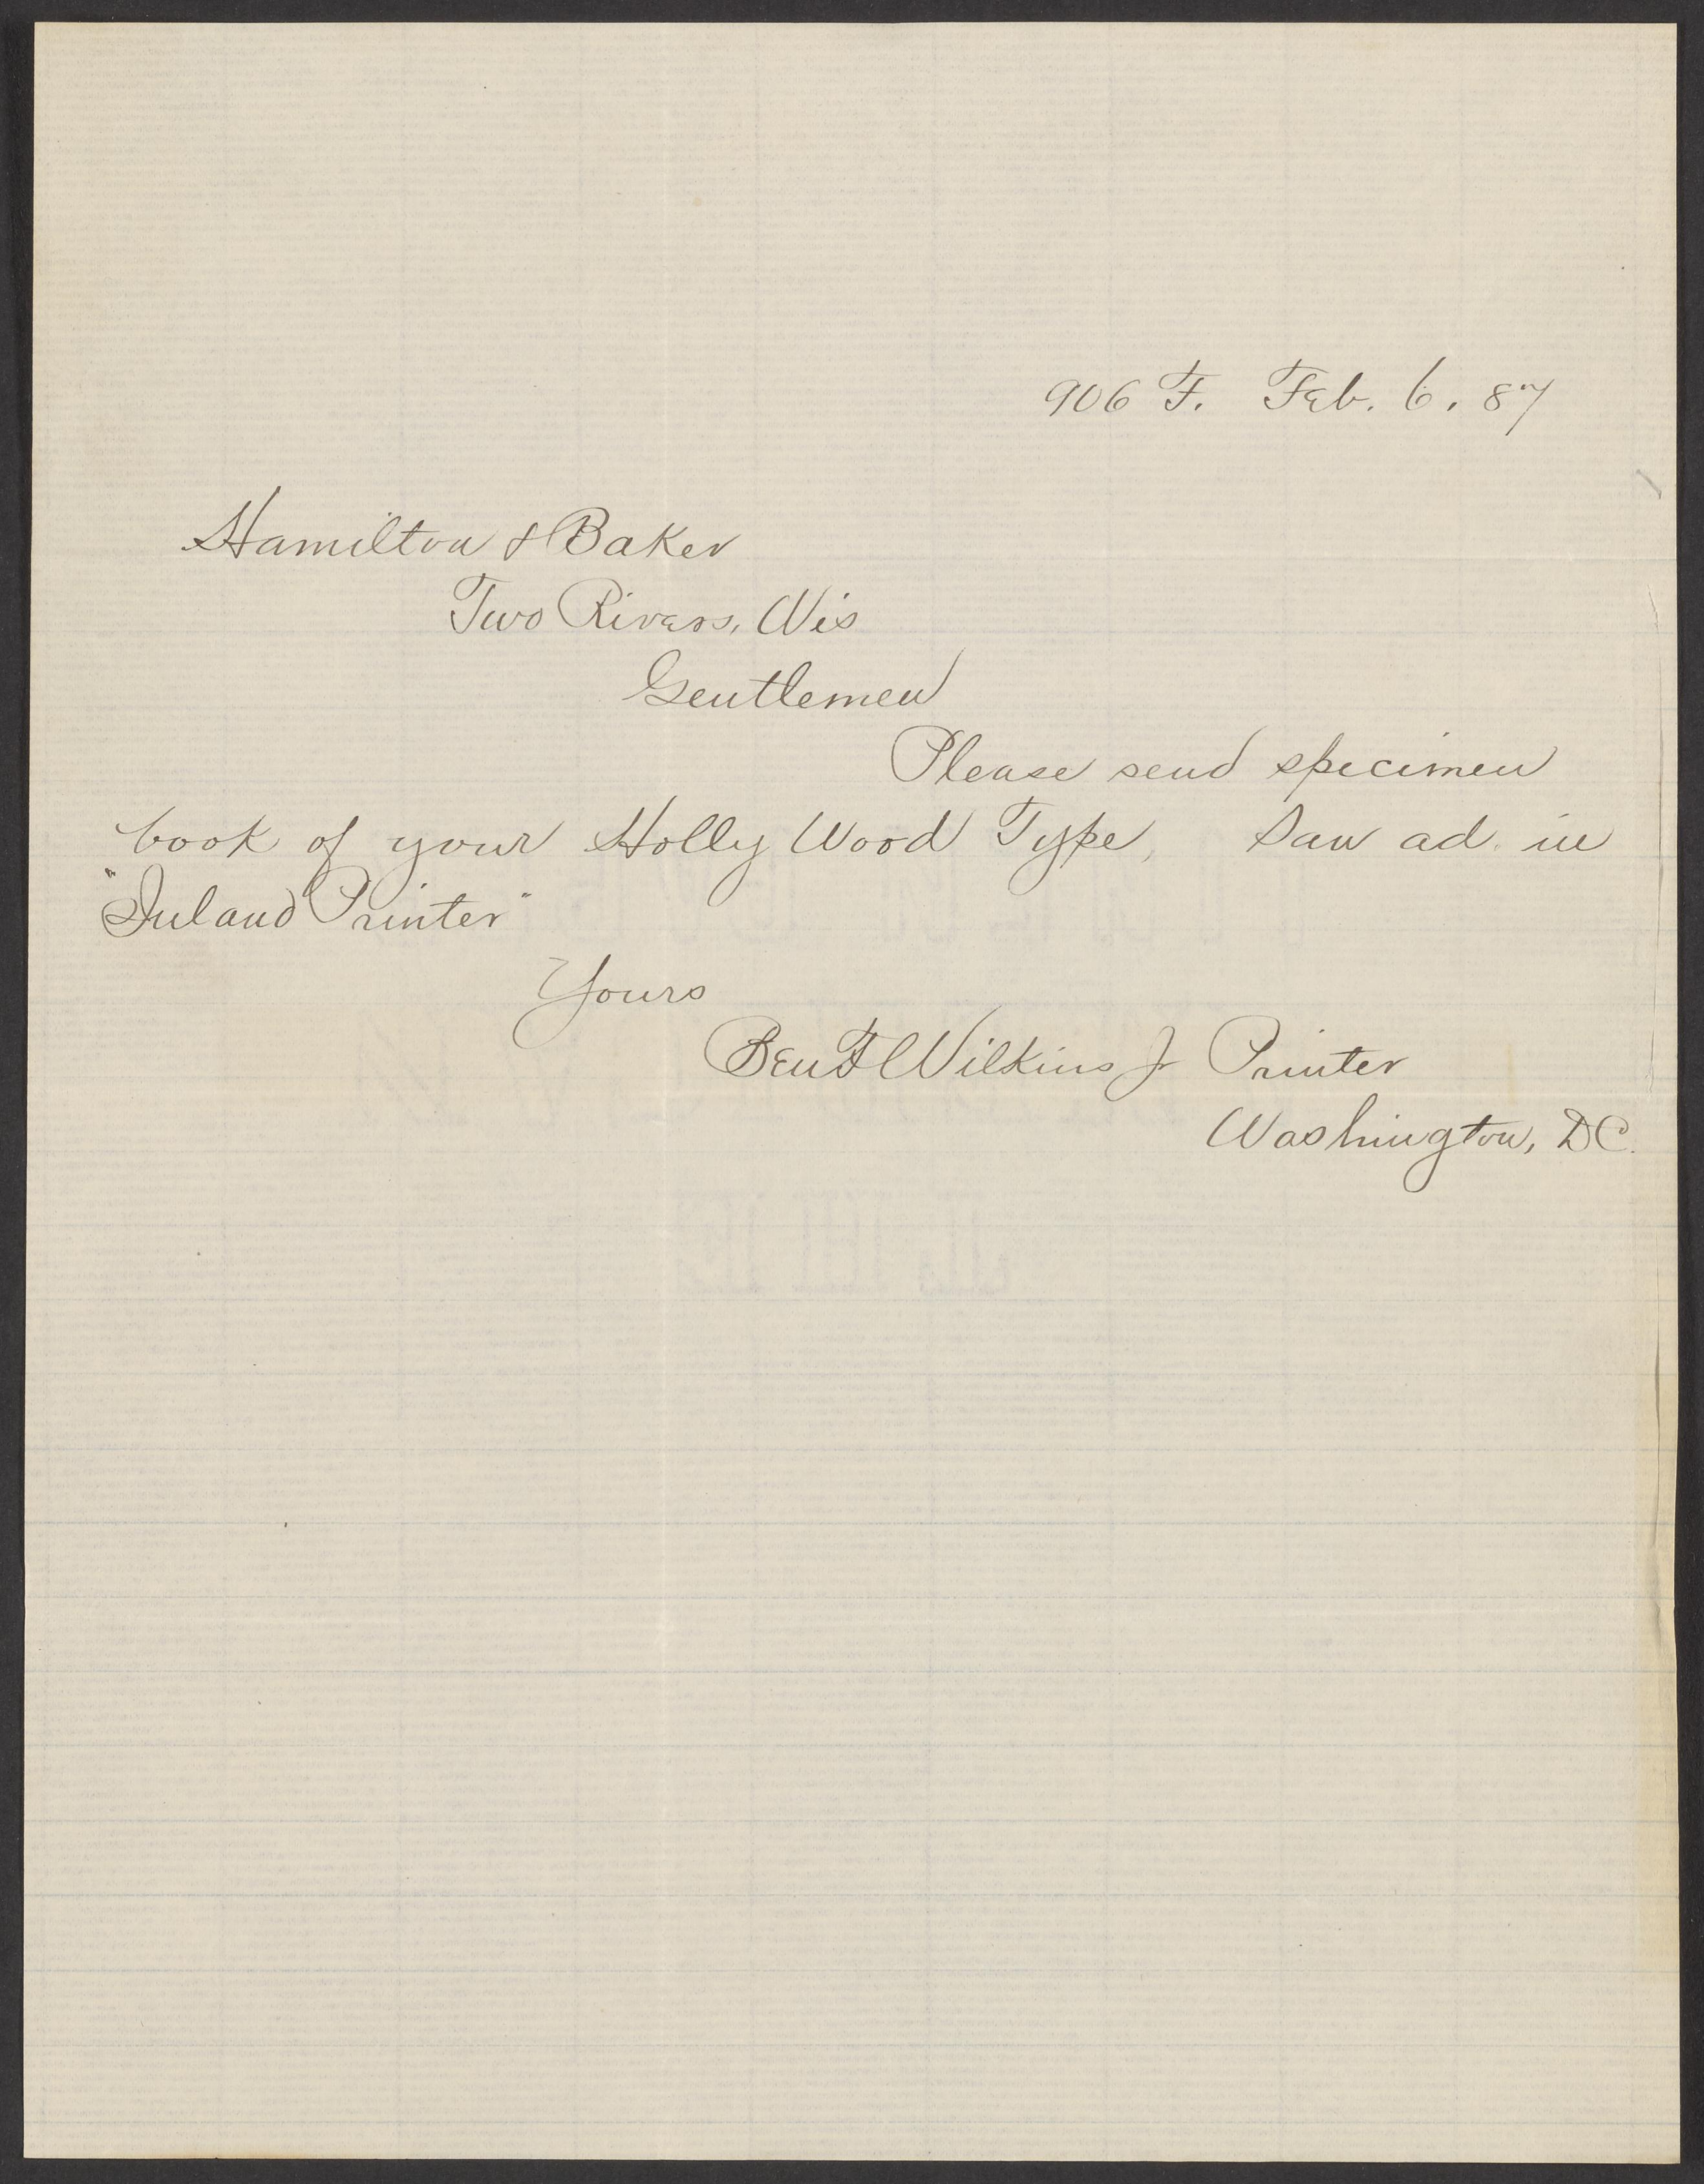 906 F. Feb. 6. 87
Hamilton & Baker
Two Rivers, Wis
Gentlemen
Please send specimen
book of your Holly Wood Type, Saw ad. in
"Inland Printer"
Yours
Ben F Wilkins Jr Printer
Washington, DC.